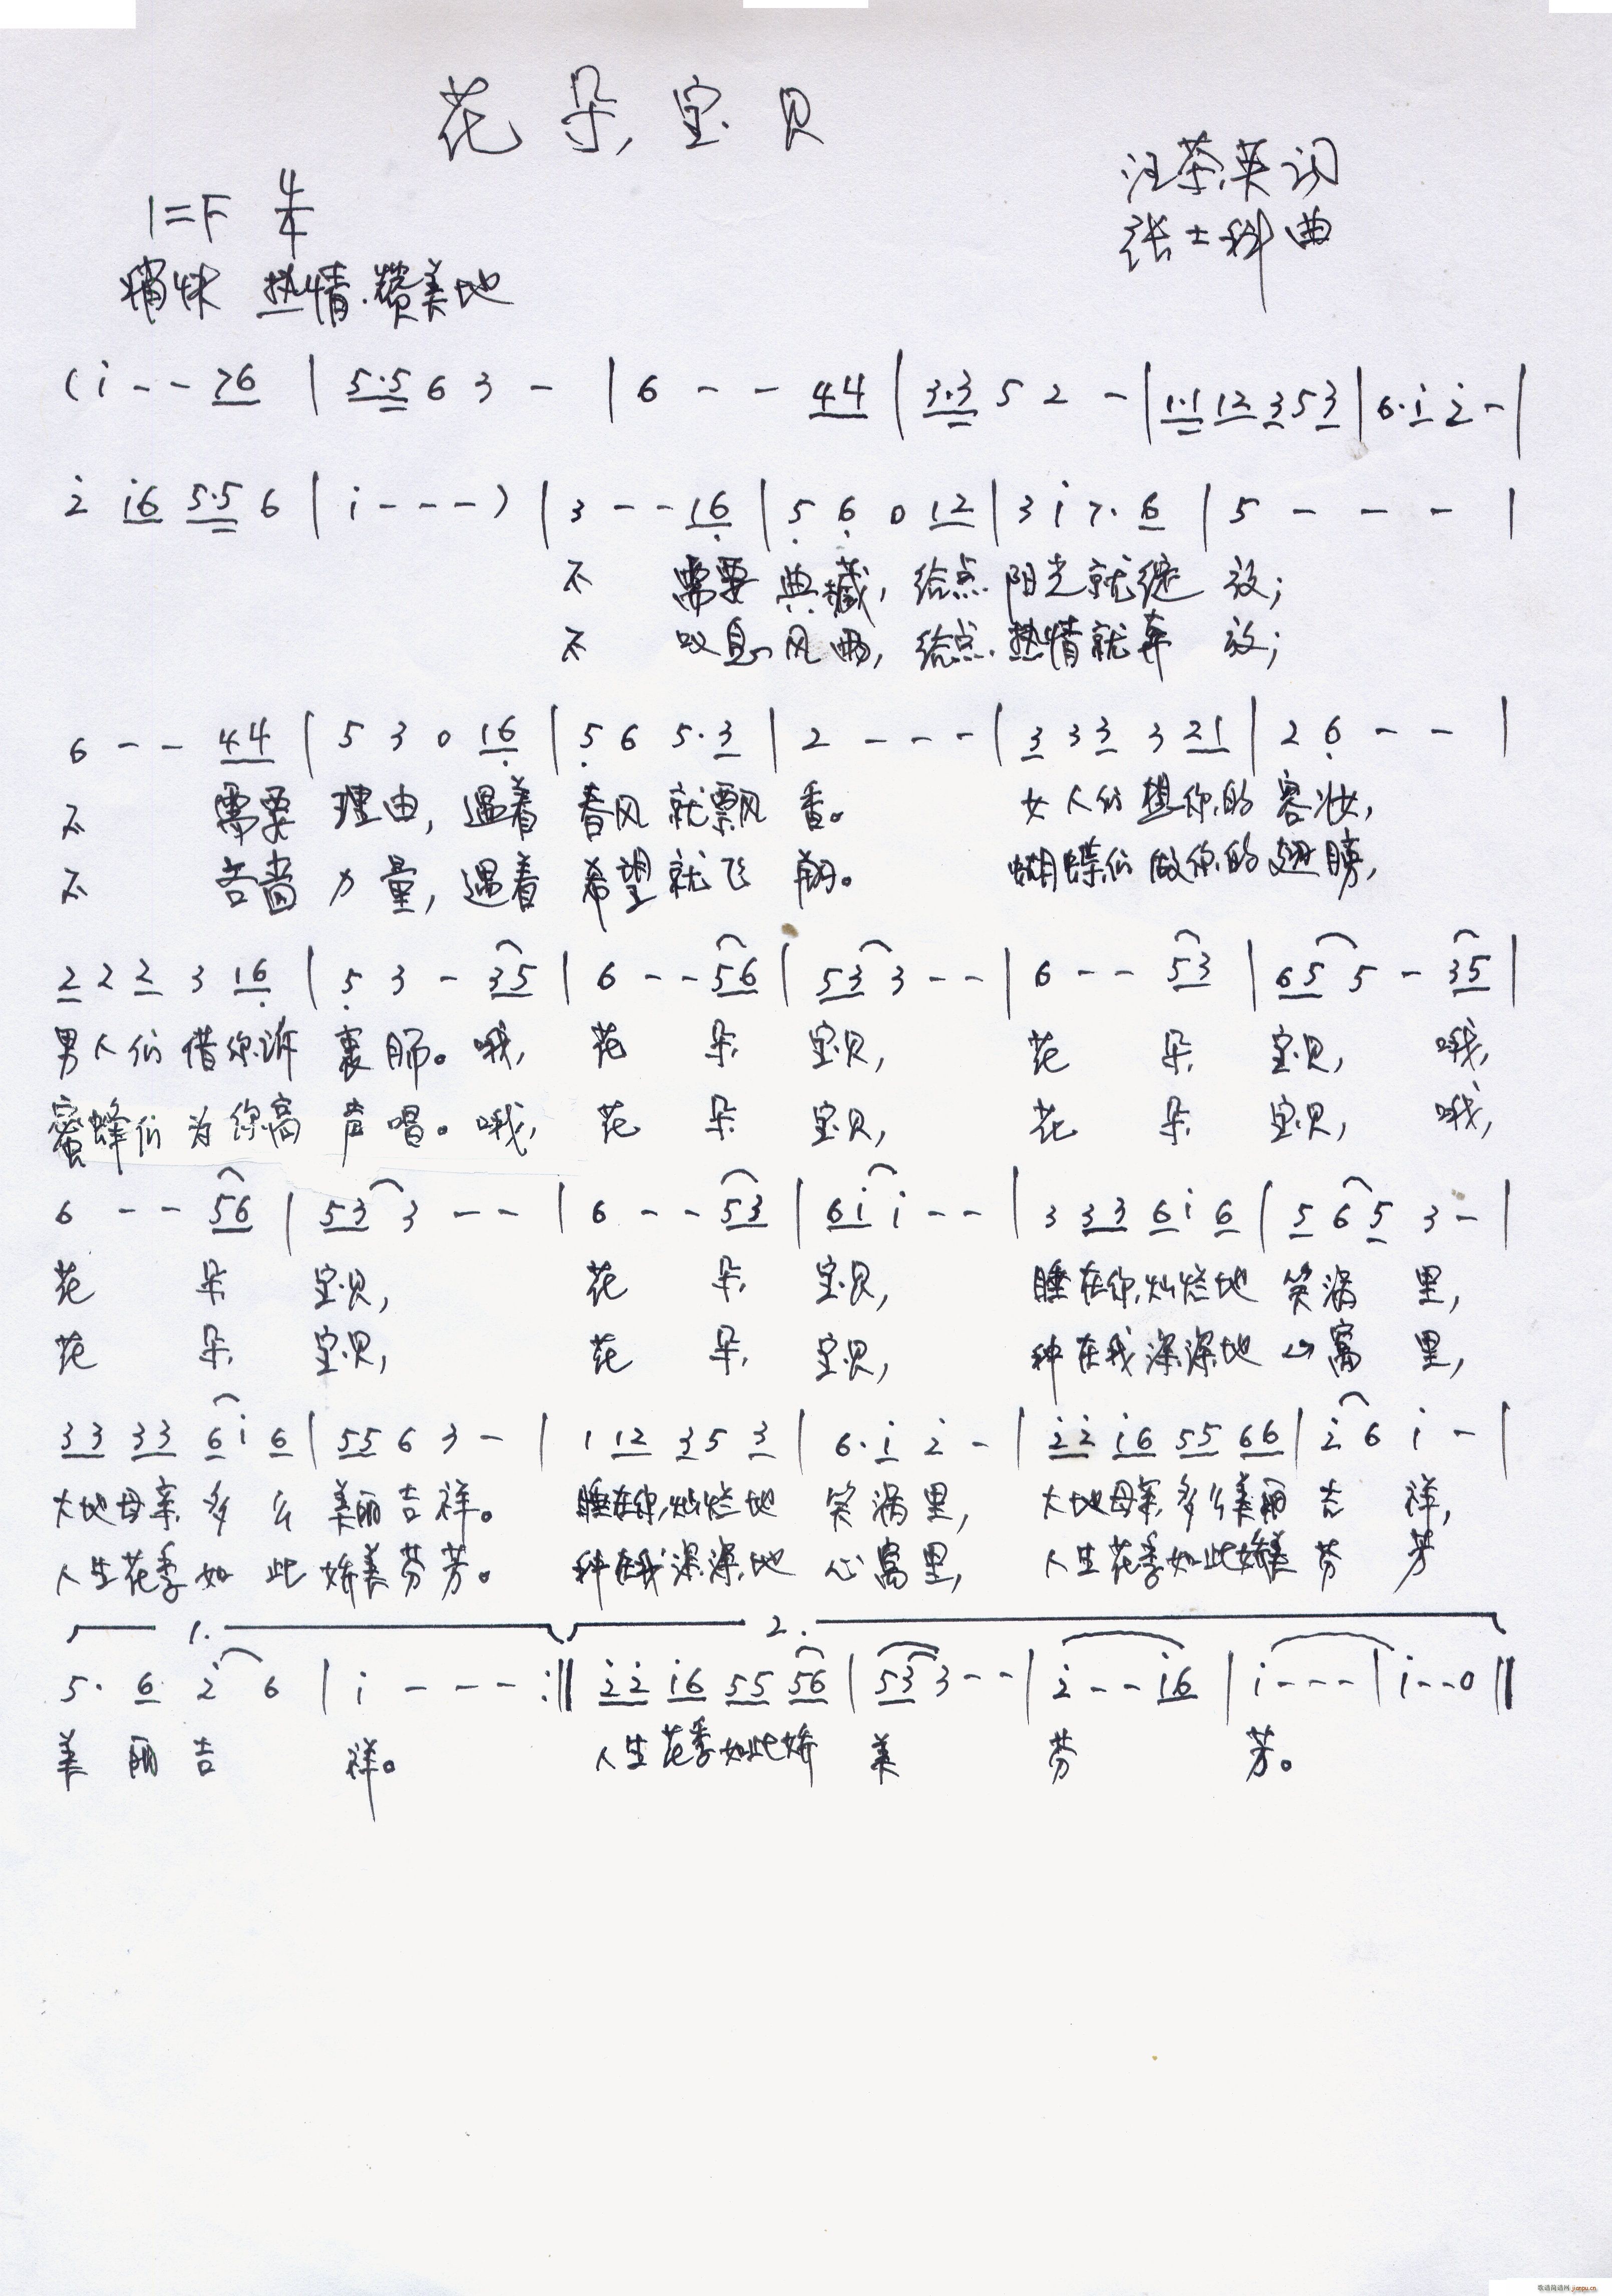 花朵宝贝
汪茶英词
1=F 4/4
张士科曲
稍快 热情.赞美地
(i̇ - - 76 | 5·5 6 3 - | 6 - - 44 | 3·3 5 2 - | 1·1 12 3 5 3 | 6·i̇ 2̇ - |
2̇ i̇6 5·5 6 | i̇ - - - ) | 3 - - 16̣ | 5̣ 6̣ 0 12 | 3 i̇ 7·6 | 5 - - - |
不 需要 典藏,给点阳光就绽 放;
不 叹息风雨,给点热情就奔 放;
6 - - 44 | 5 3 0 16̣ | 5̣ 6 5·3 | 2 - - - | 3 3 3 3 21 | 2 6̣ - - |
不 需要 理由,遇着 春风就飘 香。 女人们想你的容妆,
不 吝啬 力量,遇着 希望就飞 翔。 蝴蝶们做你的翅膀,
2 2 2 3 16̣ | 5̣ 3 - 35 | 6 - - 56 | 53 3 - - | 6 - - 53 | 65 5 - 35 |
男人们借你诉 衷肠。哦, 花 朵 宝贝, 花 朵 宝贝, 哦,
蜜蜂们为你高 声唱。哦, 花 朵 宝贝, 花 朵 宝贝, 哦,
6 - - 56 | 53 3 - - | 6 - - 53 | 6i̇ i̇ - - | 3 33 6 i̇ 6 | 5 6 5 3 - |
花 朵 宝贝, 花 朵 宝贝, 睡在你灿烂地 笑涡 里,
花 朵 宝贝, 花 朵 宝贝, 种在我深深地 心窝 里,
33 33 6 i̇ 6 | 55 6 3 - | 1 12 3 5 3 | 6·i̇ 2̇ - | 2̇2̇ i̇6 55 66 | 2̇ 6 i̇ - |
大地母亲 多 么 美丽吉祥。 睡在你灿烂地 笑涡里, 大地母亲多么美丽 吉 祥,
人生花季如 此 娇美芬芳。 种在我深深地 心窝里, 人生花季如此娇美 芬 芳
1. 2.
5· 6 2̇ 6 | i̇ - - - :‖ 2̇2̇ i̇6 55 56 | 53 3 - - | 2̇ - - i̇6 | i̇ - - - | i̇ - - 0 ‖
美 丽 吉 祥。 人生花季如此娇 美 芬 芳。
歌谱简谱网 jianpu.cn